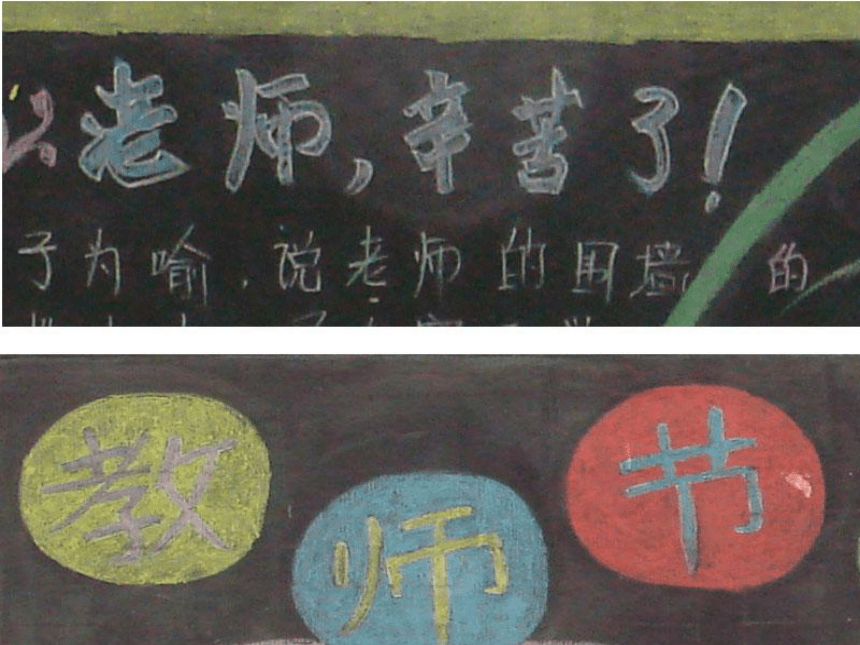 老师,辛苦了!
子为喻.说老师的围墙 的
教师节